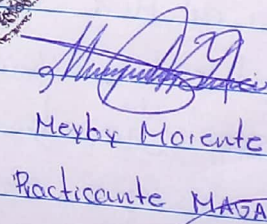 Meyby Morente
Practicante MAGA